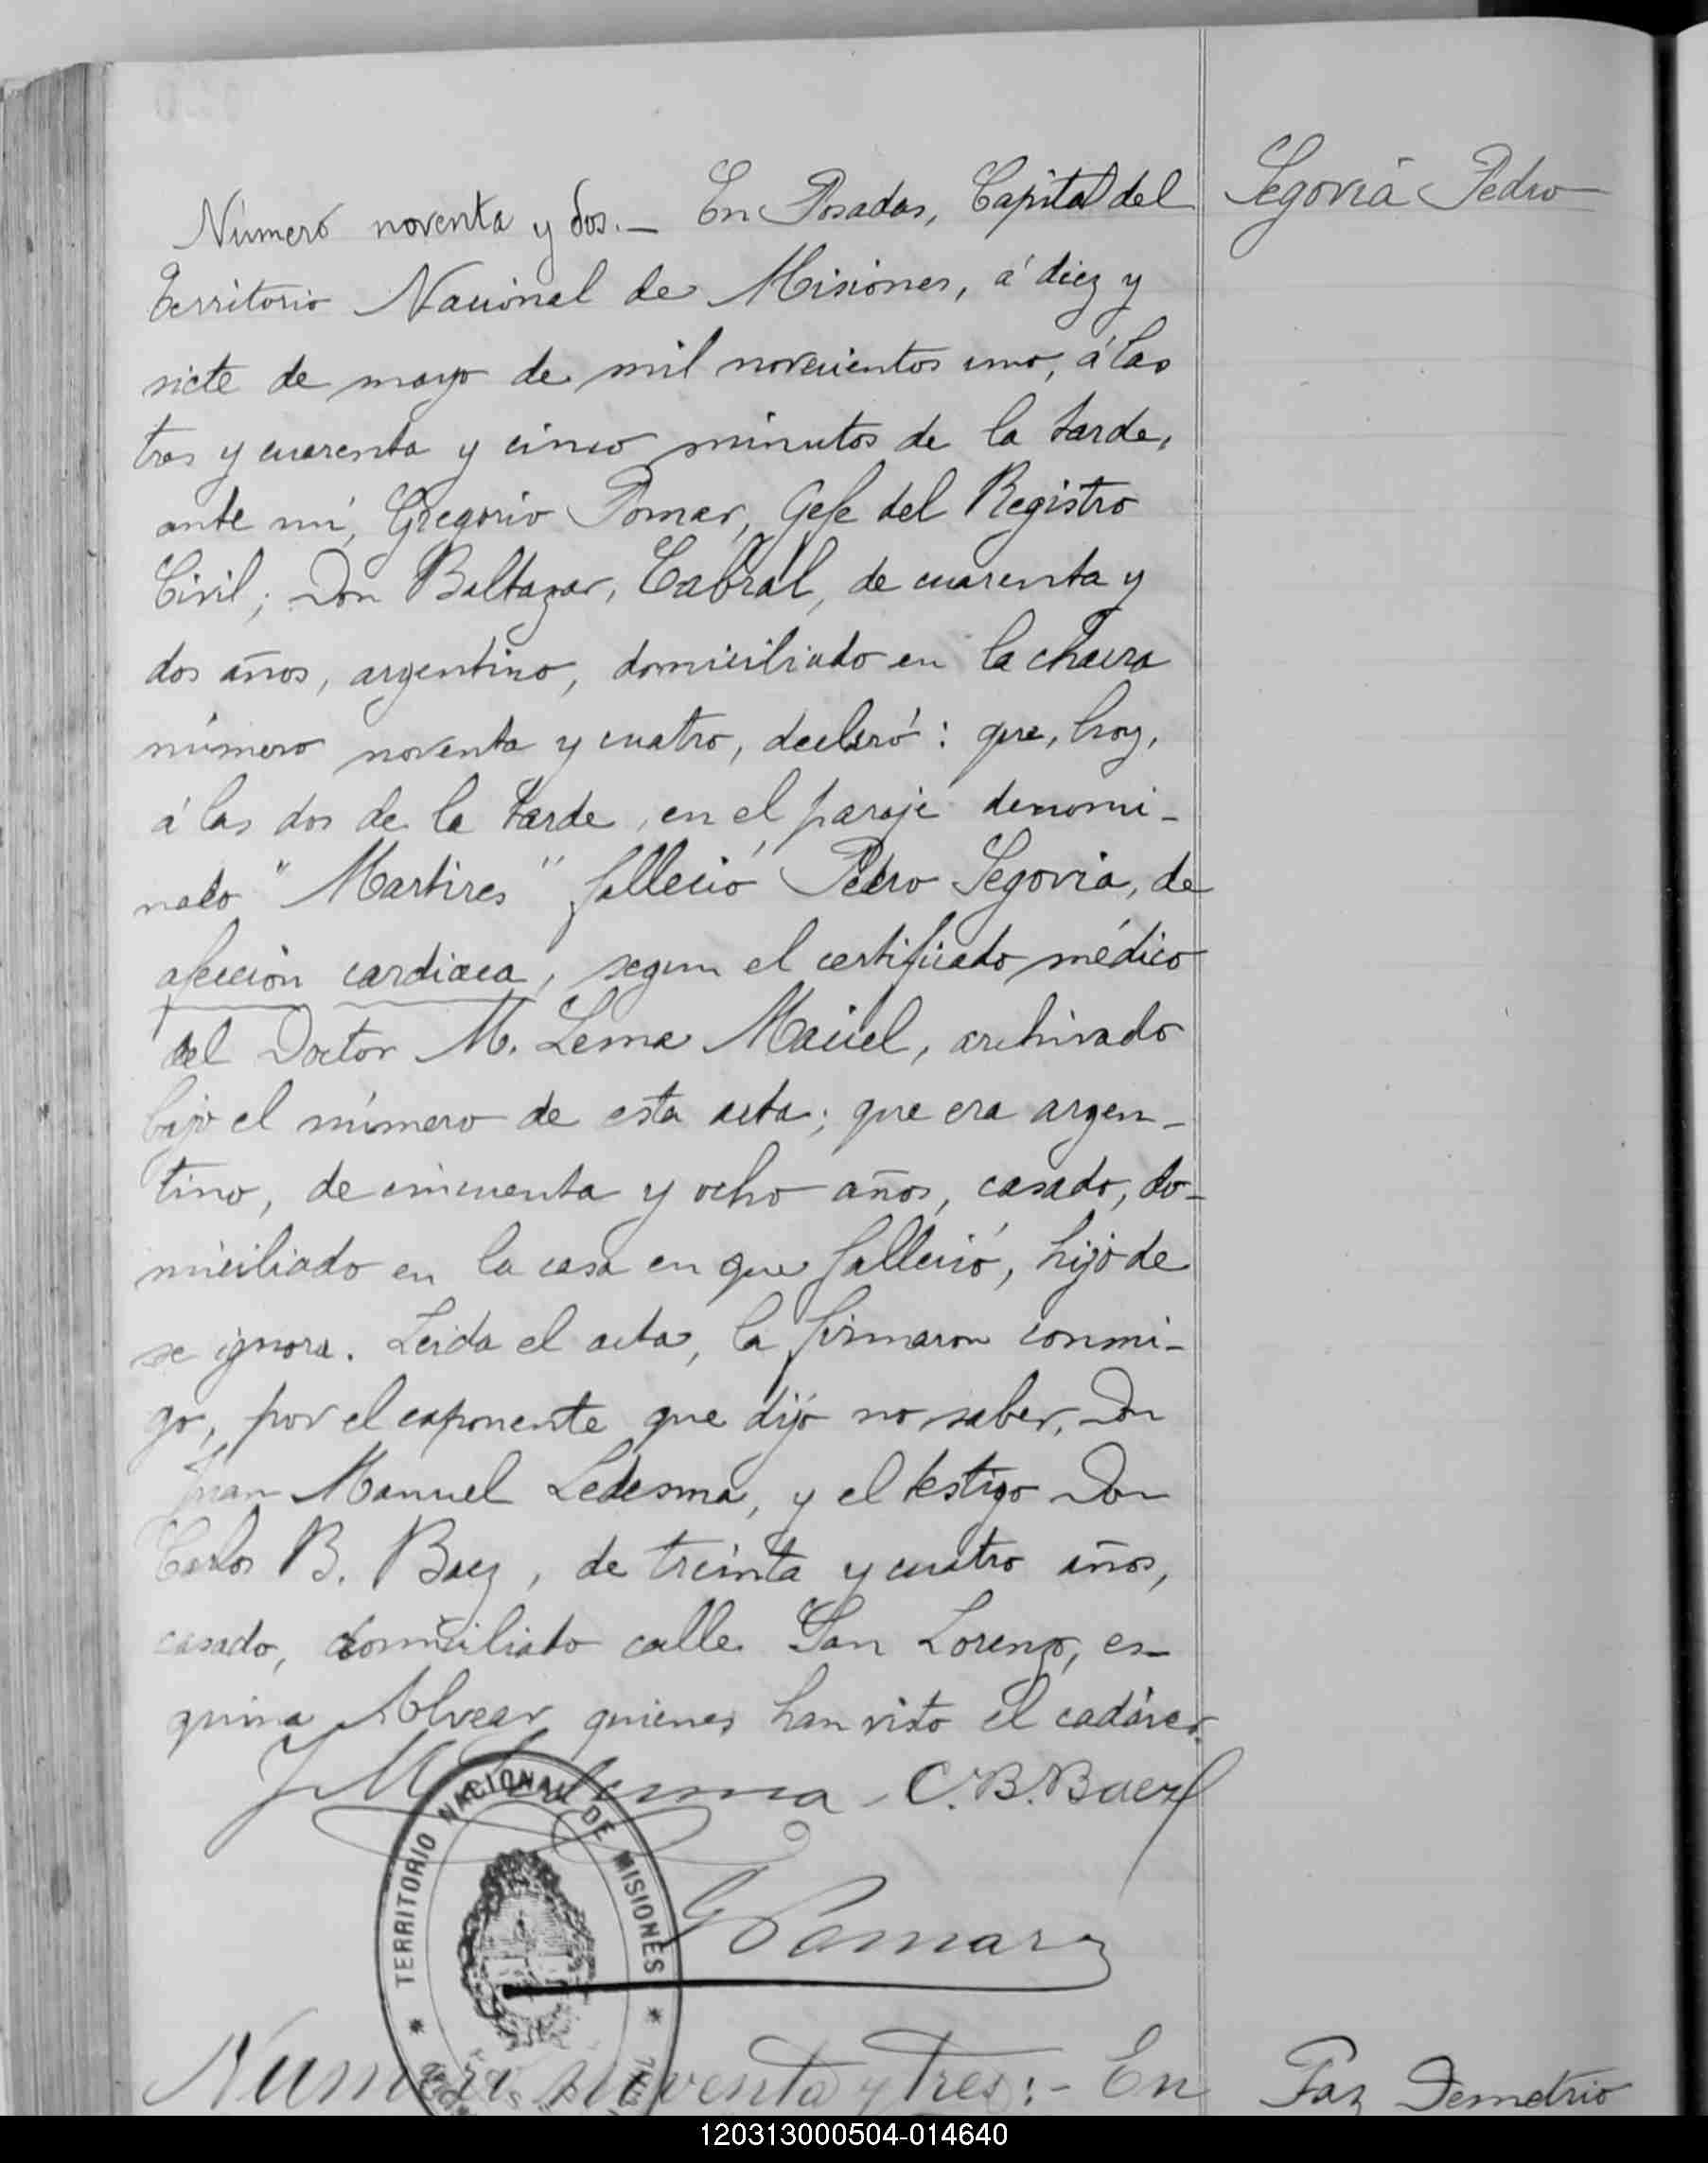 Segovia Pedro
Número noventa y dos. — En Posadas, Capital del
Territorio Nacional de Misiones, á diez y
siete de mayo de mil novecientos uno, á las
tres y cuarenta y cinco minutos de la tarde,
ante mí, Gregorio Pomar, Gefe del Registro
Civil; Don Baltazar, Cabral, de cuarenta y
dos años, argentino, domiciliado en la chacra
número noventa y cuatro, declaró: que, hoy,
á las dos de la tarde, en el paraje denomi-
nado "Martires" falleció Pedro Segovia, de
afección cardiaca, segun el certificado médico
del Doctor M. Lema Maciel, archivado
bajo el número de esta acta; que era argen-
tino, de cincuenta y ocho años, casado, do-
miciliado en la casa en que falleció, hijo de
se ignora. Leida el acta, la firmaron conmi-
go, por el exponente que dijo no saber, Don
Juan Manuel Ledesma, y el testigo Don
Carlos B. Baez, de treinta y cuatro años,
casado, domiciliado calle San Lorenzo, es-
quina Alvear quienes han visto el cadáver.
J M Ledesma C. B. Baez
TERRITORIO NACIONAL DE MISIONES
G Pomar
Numero noventa y tres:- En
Paz Demetrio
120313000504-014640